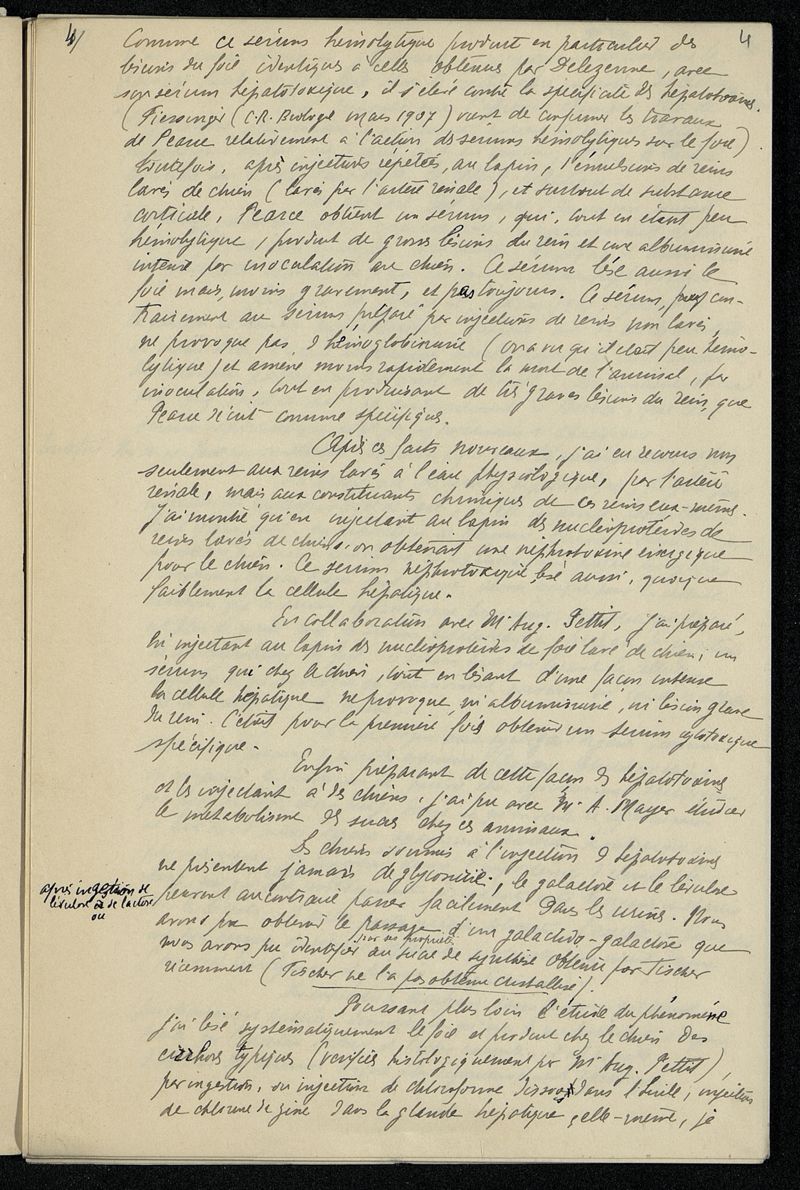 4/
4
Comme ce sérum hémolytique produit en particulier des
lésions du foie identiques à celles obtenues par Delezenne, avec
son sérum hépatotoxique, il s'élève contre la spécificité des hépatotoxines.
(Fiessinger (C.R. Biologie mars 1907) vient de confirmer les travaux
de Pearce relativement à l'action des sérums hémolytiques sur le foie)
toutefois, après injections répétées, au lapin, d'émulsions de reins
lavés de chien (lavés par l'artère rénale), et surtout de substance
corticale, Pearce obtient un sérum, qui, tout en étant peu
hémolytique, produit de grosses lésions du rein et une albuminurie
intense par inoculation au chien. Ce sérum lèse aussi le
foie mais, moins gravement, et pas toujours. Ce sérum, con-
trairement au sérum préparé par injections de reins non lavés,
ne provoque pas d'hémoglobinurie (on a vu qu'il était peu hémo-
lytique) et amène moins rapidement la mort de l'animal, par
inoculation, tout en produisant de très graves lésions du rein, que
Pearce décrit comme spécifiques.
Après ces faits nouveaux, j'ai eu recours non
seulement aux reins lavés à l'eau physiologique, par l'artère
rénale, mais aux constituants chimiques de ces reins eux-mêmes.
J'ai montré qu'en injectant au lapin des nucléoprotéides de
reins lavés de chiens, on obtenait une néphrotoxine énergique
pour le chien. Ce sérum néphrotoxique lèse aussi, quoique
faiblement la cellule hépatique.
En collaboration avec Mr Aug. Pettit, j'ai préparé,
en injectant au lapin des nucléoprotéides de foie lavé de chien, un
sérum qui chez le chien, tout en lésant d'une façon intense
la cellule hépatique ne provoque ni albuminurie, ni lésion grave
du rein. C'était pour la première fois obtenir un sérum cytotoxique
spécifique.
Enfin préparant de cette façon des hépatotoxines
et les injectant à des chiens, j'ai pu avec Mr A. Mayer étudier
le métabolisme des sucres chez ces animaux.
Les chiens soumis à l'injection d'hépatotoxines
ne présentent jamais de glycosurie, le galactose et le lévulose
peuvent au contraire passer facilement dans les urines. Nous
après ingestion de
lévulose ou de lactose
ou
avons pu obtenir le passage d'un galactido-galactose que
nous avons pu identifier par ses propriétés au sucre de synthèse obtenu par Fischer
récemment (Fischer ne l'a pas obtenu cristallisé).
Poussant plus loin l'étude du phénomène
j'ai lésé systématiquement le foie et produit chez le chien des
cirrhoses typiques (vérifiées histologiquement par Mr Aug. Pettit),
par ingestion, ou injection de chloroforme dissous dans l'huile, injection
de chlorure de zinc dans la glande hépatique elle-même, je